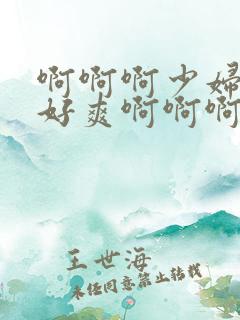 啊啊啊少婦
好爽啊啊啊
王世海
未经同意禁止转载